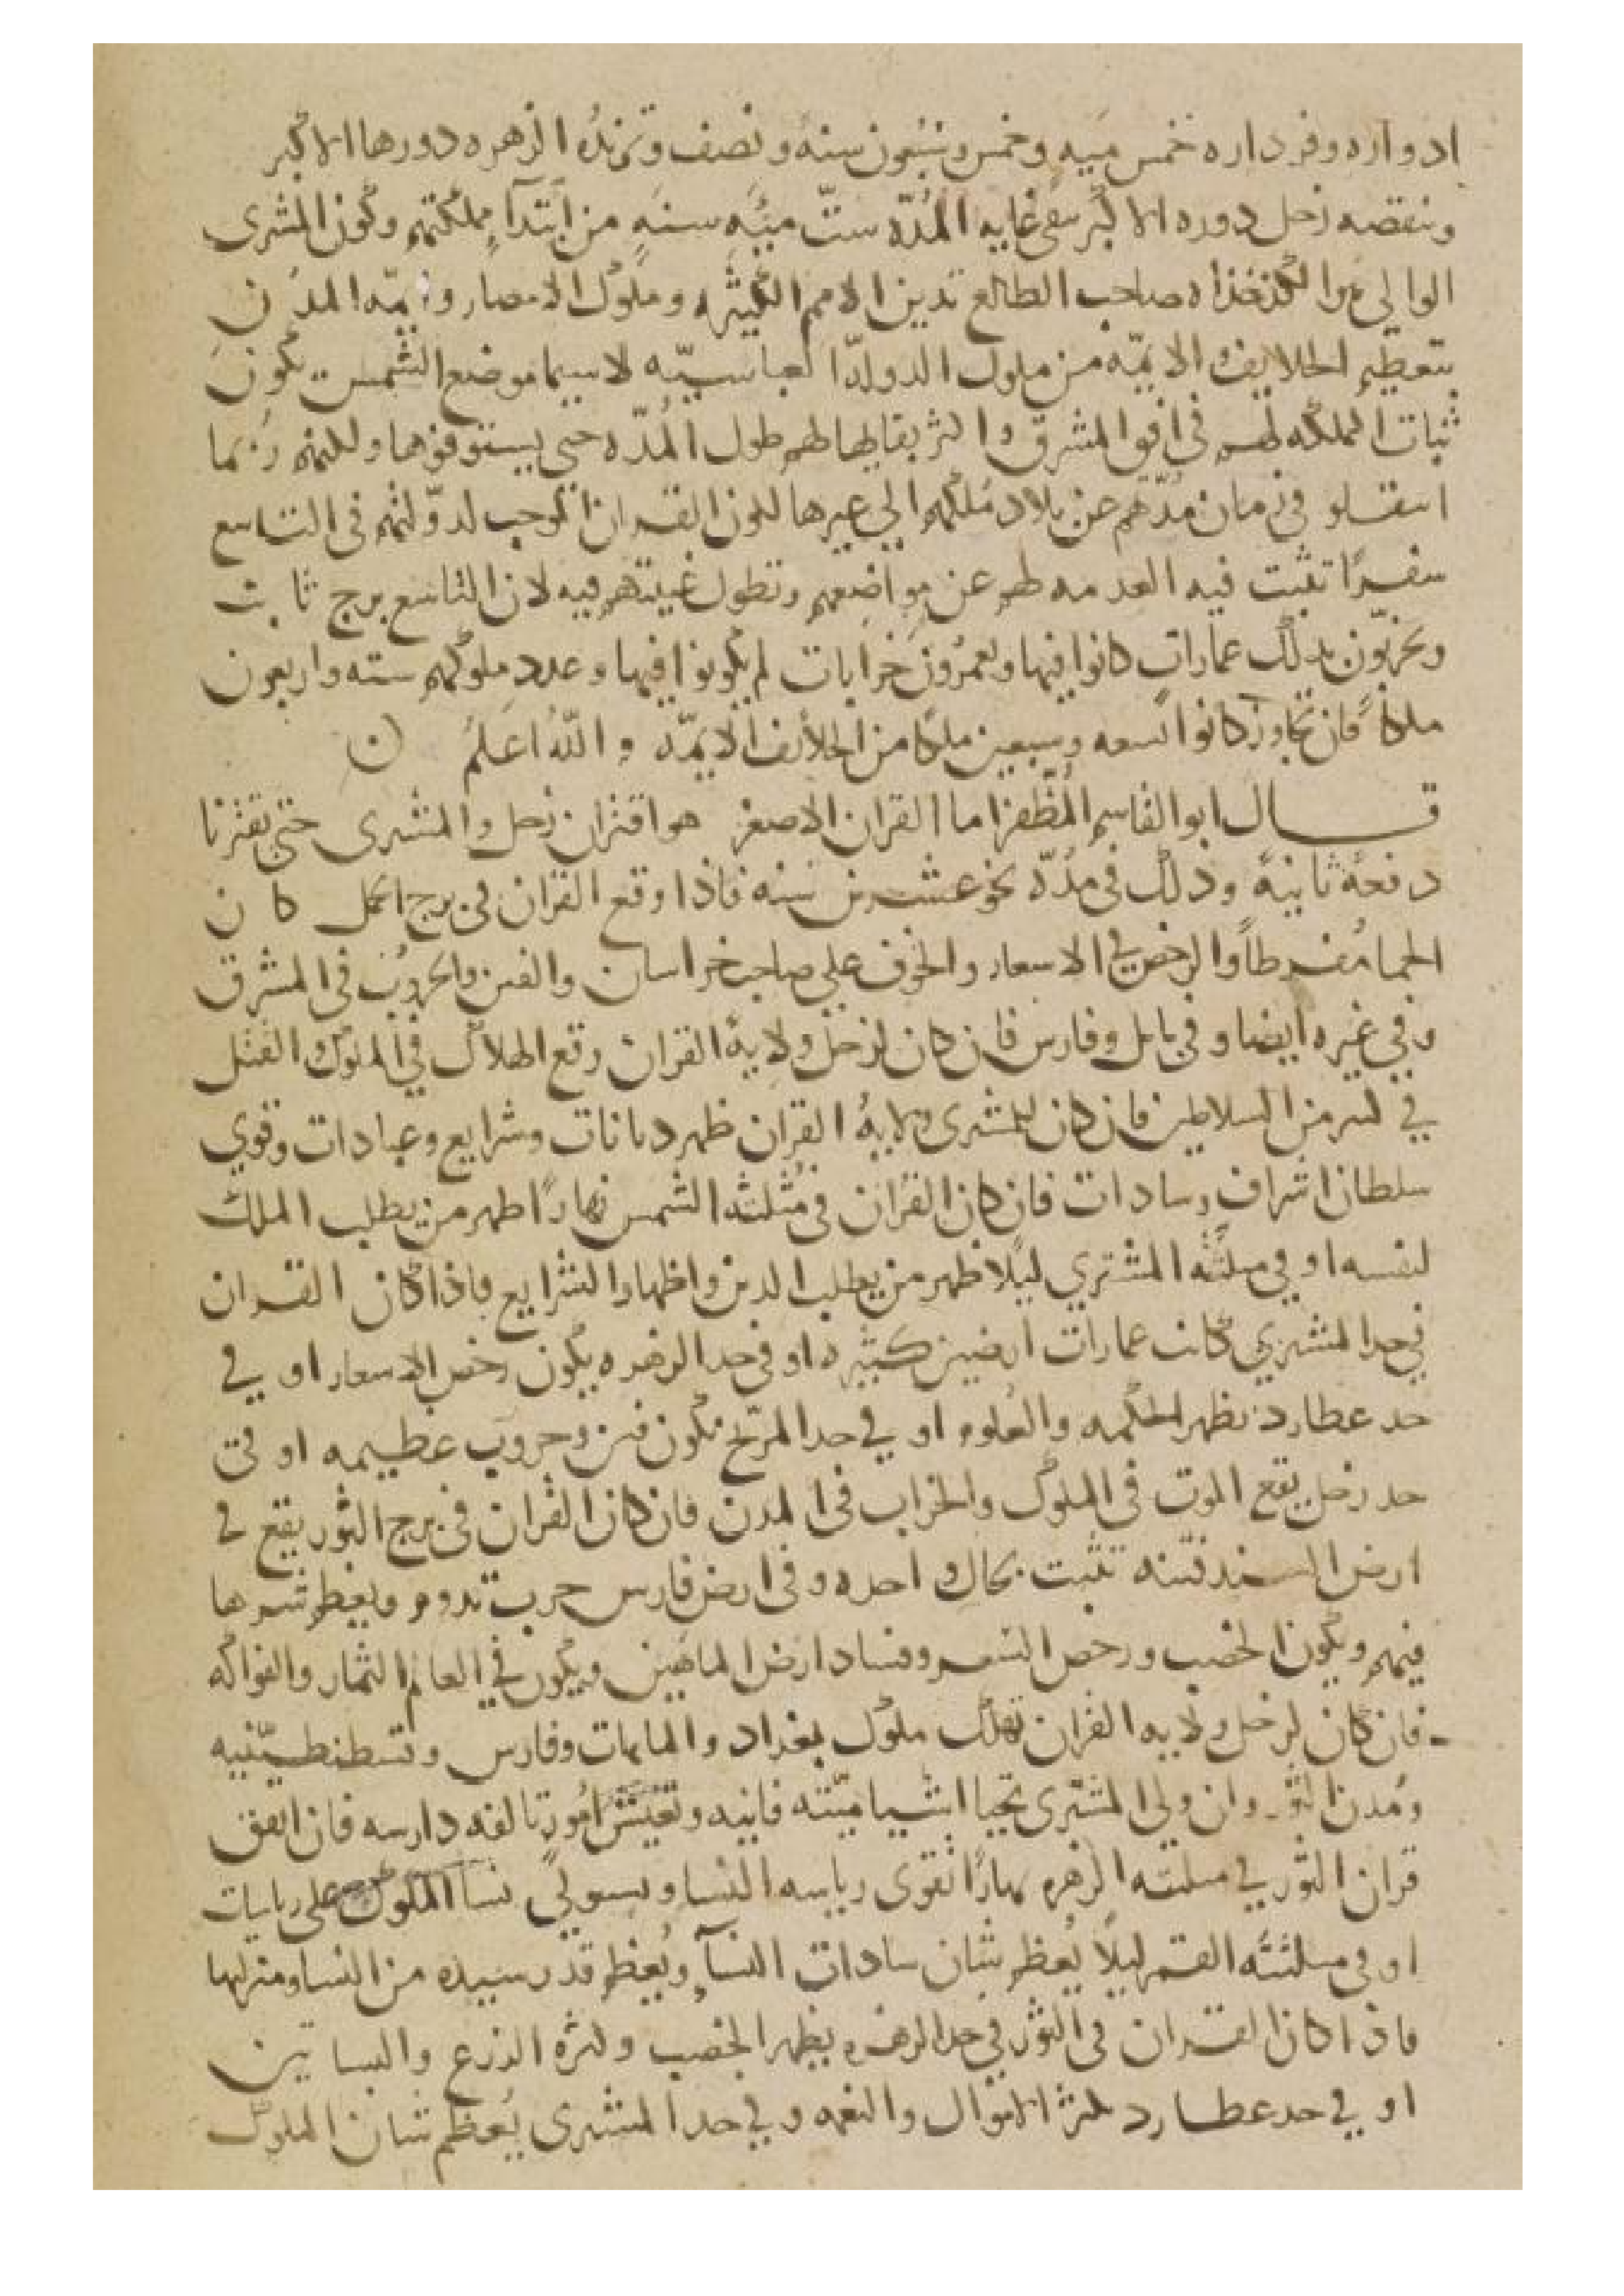 ادواره وفرداره خمس ميه وخمس وتسعون سنه ونصف وتزيده الزهره دورها الاكبر
وينقصه زحل دوره الاكبر بقى غايه المُدّه ستّ ميّه سنه من ابتدآ مملكتهم وكون المشترى
الوالى على الكذخذاه صاحب الطالع تدين الامم الكثيره وملوك الامصار وايمّه المدن
بتعظيم الخلايف الايمّه من ملوك الدوله العباسيّه لاسيما موضع الشمس يكون
ثبات المملكه لهم فى افق المشرق واكثر بقايها لهم طول المُدّه حتى يستوفوها ولكنهم ربما
انتقلو فى زمان مُدّتهم عن بلاد مُلكهم الى غيرها لكون القران الموجب لدولتهم فى التاسع
سفرًا تثبت فيه لهم عن مواضعهم وتطول غيبتهم فيه لان التاسع برج ثابت
ويخربّون بذلك عمارات كانوا فيها ويعمرُون خرابات لم يكونوا فيها وعدد ملوكهم سته واربعون
ملكًا فان تجاوز كانوا تسعه وسبعين ملكًا من الخلايف الايمّه والله اعلمُ ن
قال ابو القاسم المُظفر اما القران الاصغر هو اقتران زحل والمشترى حتى يقترنا
دفعةً ثانيهً وذلك فى مدّه نحو عشرين سنه فاذا وقع القران فى برج الحمل كان
الحما مُفرطًا والرخص في الاسعار والخوف على صاحب خراسان والفتن والحروب فى المشرق
وفي غيره ايضا وفى بابل وفارس فان كان لزحل ولايةُ القران وقع الهلاك في الملوك والقتل
في كثير من السلاطين فان كان للمشترى ولايةُ القران ظهر ديانات وشرايع وعبادات وقوي
سلطان اشراف وسادات فان كان القران فى مُثلثه الشمس نهارًا ظهر من يطلب الملك
لنفسه او في مثلثه المشتري ليلًا ظهر من يطلب الدين واظهار الشرايع فاذا كان القران
في حد المشتري كانت عمارات ارضين كثيره او فى حد الزهره يكون رخص الاسعار او في
حد عطارد تظهر الحكمه والعُلوم او في حد المرّيخ تكون فتن وحروب عظيمه او فى
حد زحل يقع الموت فى الملوك والخراب فى المدن فان كان القران فى برج الثور يقع في
ارض السند فتنه تثبت بحال واحده وفى ارض فارس حرب تدوم ويعظم شرها
فيهم ويكون الخصب ورخص السعر وفساد ارض الماهين ويكون في العالم الثمار والفواكه
فان كان لزحل ولايه القران تهلك ملوك بغداد والماهات وفارس وقسطنطينيه
ومُدن الثور وان ولى المشترى تحيا اشيا ميّته فانيه وتعيش امُور تالفه دارسه فان اتفق
قران الثور في مثلثه الزهره نهارًا تقوى رياسه النسا ويستولي نسا الملوك على رياسات
او فى مثلثه القمر ليلًا يُعظم شان سادات النسآ ويُعظم قدر سيده من النسا ومنزلتها
فاذا كان القران فى الثور في حد الزهره يظهر الخصب وكثره الزرع والبساتين
او في حد عطارد تكثر الاموال والنعمه وفي حد المشترى يُعظم شان الملوك